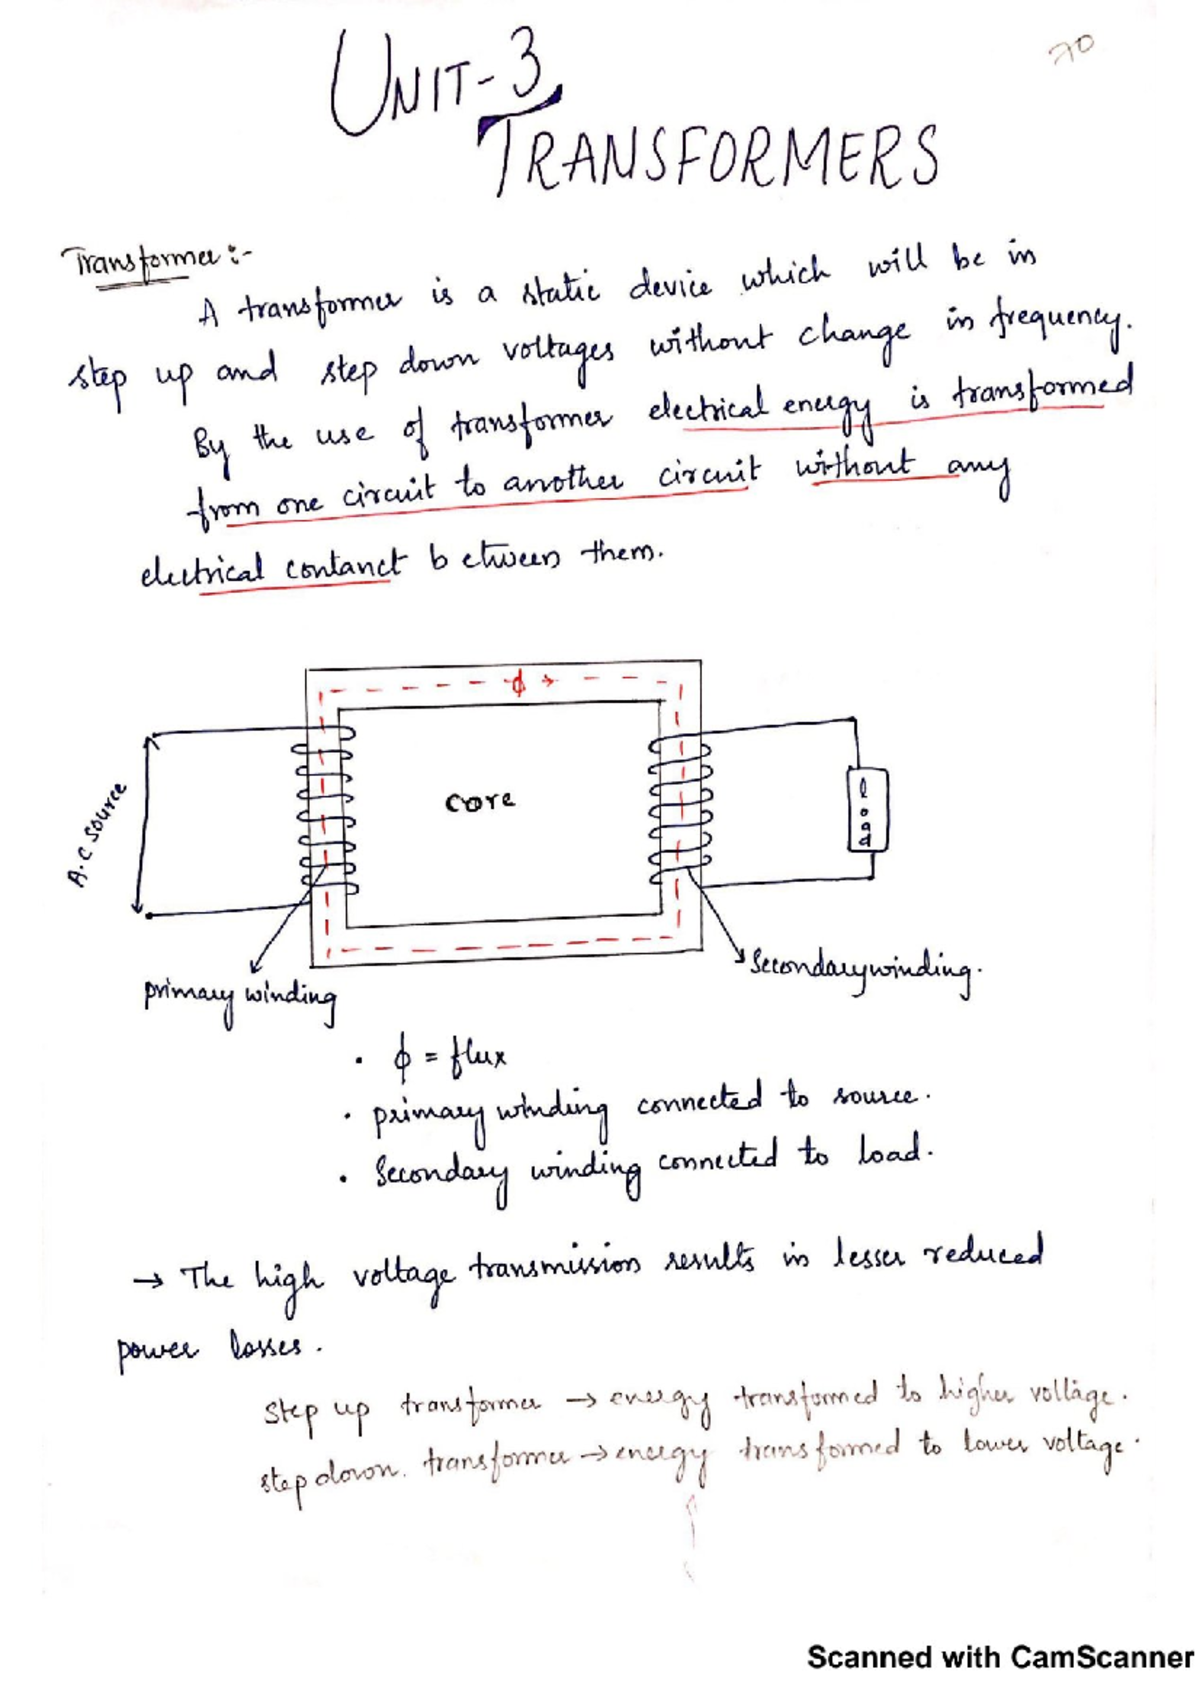 70
UNIT-3
TRANSFORMERS
Transformer:-
A transformer is a static device which will be in
step up and step down voltages without change in frequency.
By the use of transformer electrical energy is transformed
from one circuit to another circuit without any
electrical contanct between them.
ϕ
A.C source
core
load
primary winding
Secondary winding.
• ϕ = flux
• primary winding connected to source.
• Secondary winding connected to load.
→ The high voltage transmission results in lesser reduced
power losses.
step up transformer → energy transformed to higher voltage.
step down. transformer → energy transformed to lower voltage.
Scanned with CamScanner